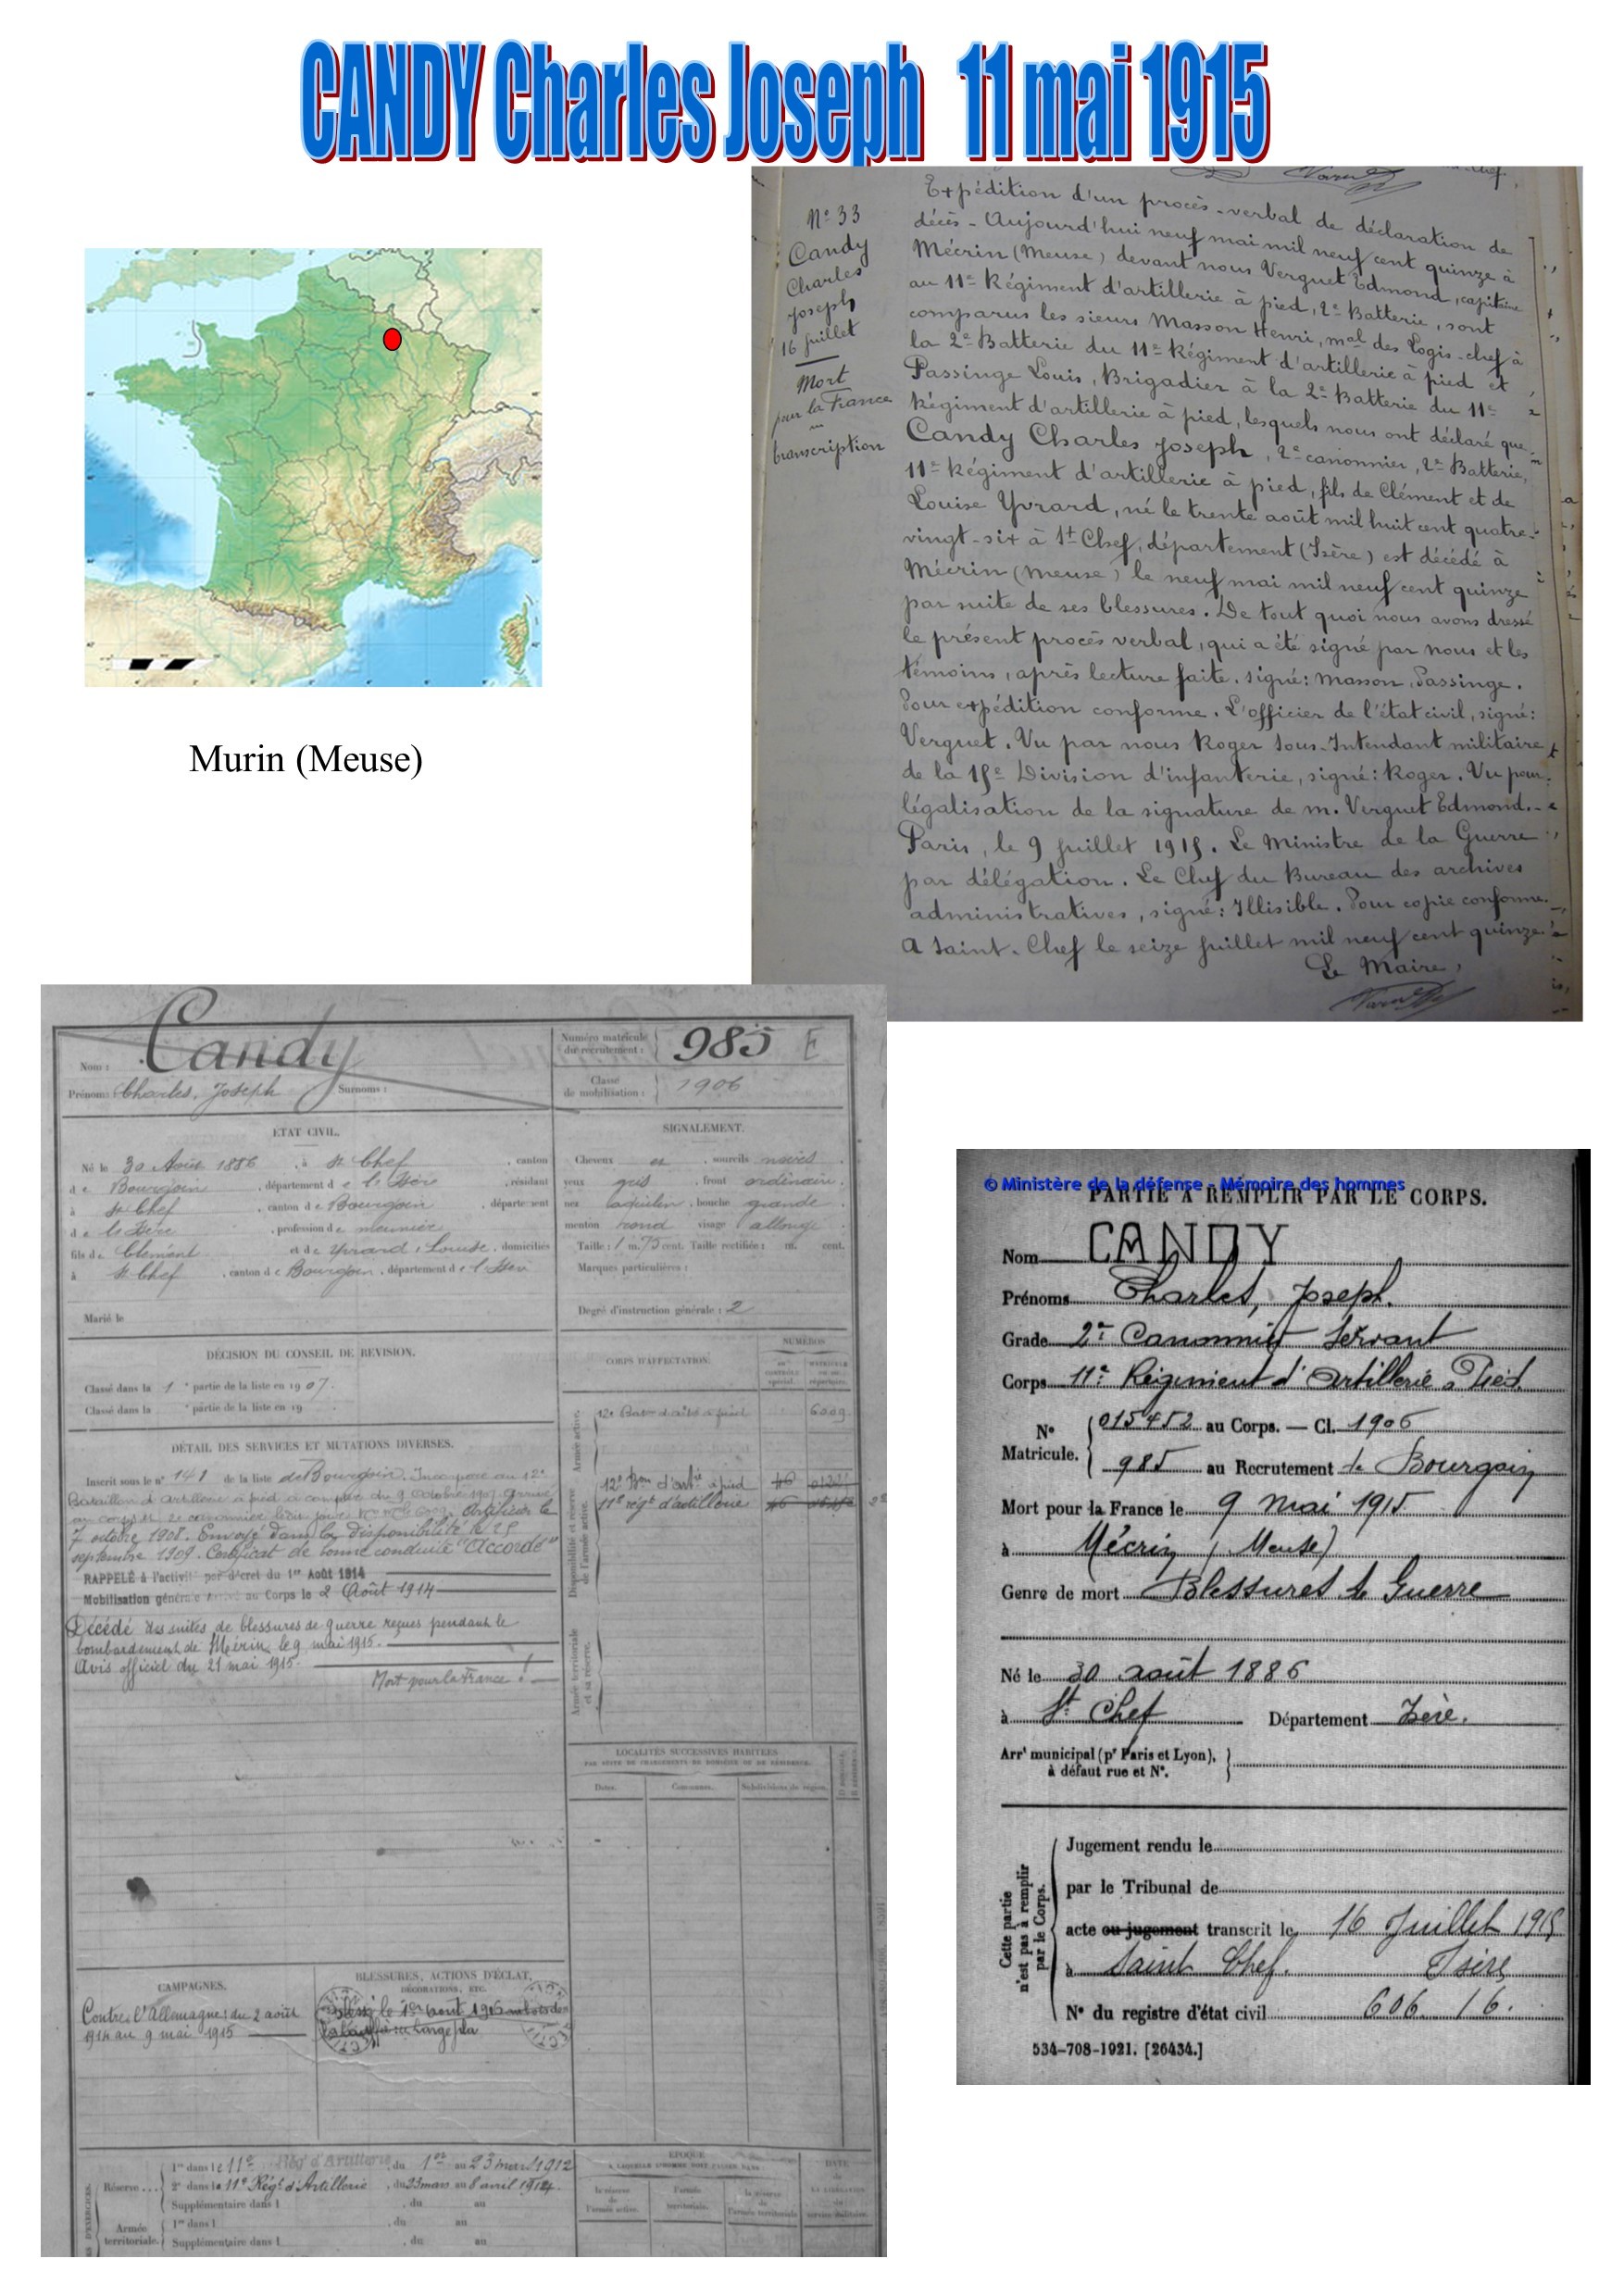 CANDY Charles Joseph 11 mai 1915
Murin (Meuse)
N° 33
Candy
Charles
Joseph
16 juillet
Mort
pour la France
transcription
Expédition d'un procès-verbal de déclaration de
décès - Aujourd'hui neuf mai mil neuf cent quinze à
Mécrin (Meuse) devant nous Verguet Edmond, capitaine
au 11e Régiment d'artillerie à pied, 2e Batterie, sont
comparus les sieurs Masson Henri, mal des Logis-chef à
la 2e Batterie du 11e Régiment d'artillerie à pied et
Passinge Louis, Brigadier à la 2e Batterie du 11e
Régiment d'artillerie à pied, lesquels nous ont déclaré que
Candy Charles Joseph, 2e canonnier, 2e Batterie,
11e Régiment d'artillerie à pied, fils de Clément et de
Louise Yvrard, né le trente août mil huit cent quatre-
vingt-six à St Chef, département (Isère) est décédé à
Mécrin (Meuse) le neuf mai mil neuf cent quinze
par suite de ses blessures. De tout quoi nous avons dressé
le présent procès verbal, qui a été signé par nous et les
témoins, après lecture faite. signé: Masson, Passinge.
Pour expédition conforme. L'officier de l'état civil, signé:
Verguet. Vu par nous Roger Sous-Intendant militaire
de la 15e Division d'infanterie, signé: Roger. Vu pour
légalisation de la signature de M. Verguet Edmond.-
Paris, le 9 juillet 1915. Le Ministre de la Guerre
par délégation. Le Chef du Bureau des archives
administratives, signé: Illisible. Pour copie conforme.
A Saint-Chef le seize juillet mil neuf cent quinze.
Le Maire,
Nom: Candy
Prénom: Charles, Joseph Surnoms:
Numéro matricule du recrutement: 985 E
Classe de mobilisation: 1906
ETAT CIVIL.
Né le 30 Août 1886, à St Chef, canton
de Bourgoin, département de l'Isère, résidant
à St Chef, canton de Bourgoin, département
de l'Isère, profession de meunier
fils de Clément et de Yvrard, Louise, domiciliés
à St Chef, canton de Bourgoin, département de l'Isère
Marié le
SIGNALEMENT.
Cheveux et sourcils noirs
yeux gris, front ordinaire
nez aquilin, bouche grande
menton rond visage allongé
Taille: 1 m. 75 cent. Taille rectifiée: m. cent.
Marques particulières:
Degré d'instruction générale: 2
DÉCISION DU CONSEIL DE REVISION.
Classé dans la 1e partie de la liste en 1907.
Classé dans la e partie de la liste en 19
DÉTAIL DES SERVICES ET MUTATIONS DIVERSES.
Inscrit sous le n° 141 de la liste de Bourgoin. Incorporé au 12e
Bataillon d'artillerie à pied à compter du 9 octobre 1907. Arrivé
au corps et 2e canonnier ledit jour. Artificier le
7 octobre 1908. Envoyé dans la disponibilité le 25
septembre 1909. Certificat de bonne conduite "Accordé"
RAPPELÉ à l'activité par décret du 1er Août 1914
Mobilisation générale au Corps le 2 Août 1914
Décédé des suites de blessures de guerre reçues pendant le
bombardement de Mérin, le 9 mai 1915.
Avis officiel du 21 mai 1915.
Mort pour la France!
CORPS D'AFFECTATION.
NUMÉROS
Armée active.
12e Baton d'artie à pied 6009
Disponibilité et réserve de l'armée active.
12e Bon d'artie à pied
11e régt d'artillerie
Armée territoriale et sa réserve.
LOCALITÉS SUCCESSIVES HABITÉES
PAR SUITE DE CHANGEMENTS DE DOMICILE OU DE RÉSIDENCE.
Dates. Communes. Subdivisions de région.
CAMPAGNES.
Contre l'Allemagne: du 2 août
1914 au 9 mai 1915
BLESSURES, ACTIONS D'ÉCLAT,
DÉCORATIONS, ETC.
Réserve... 1re dans le 11e Régt d'Artillerie, du 1er au 23 mars 1912
2e dans le 11e Régt d'Artillerie, du 23 mars au 8 avril 1914.
Supplémentaire dans l , du au
Armée territoriale. 1re dans l , du au
Supplémentaire dans l , du au
ÉPOQUE
DATE
© Ministère de la défense - Mémoire des hommes
PARTIE A REMPLIR PAR LE CORPS.
Nom CANDY
Prénoms Charles, Joseph.
Grade 2e Canonnier Servant
Corps 11e Régiment d'Artillerie à Pied
N° Matricule. 015452 au Corps. — Cl. 1906
985 au Recrutement de Bourgoin
Mort pour la France le 9 mai 1915
à Mécrin (Meuse)
Genre de mort Blessures de Guerre
Né le 30 août 1886
à St Chef Département Isère.
Arrt municipal (pr Paris et Lyon),
à défaut rue et N°.
Cette partie n'est pas à remplir par le Corps.
Jugement rendu le
par le Tribunal de
acte ou jugement transcrit le 16 Juillet 1915
à Saint Chef. Isère
N° du registre d'état civil 606 16.
534-708-1921. [26434.]